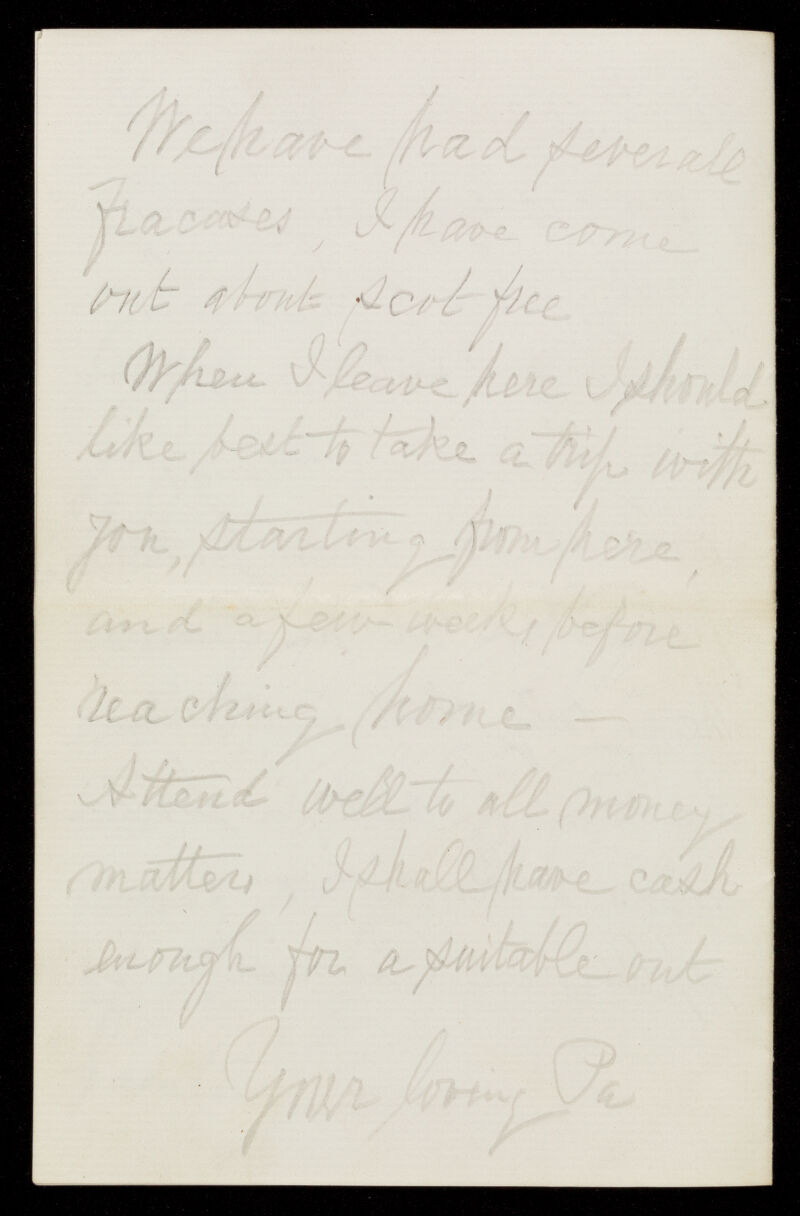 We have had severall
Fracases, I have come
out about scot free
When I leave here I should
like best to take a trip with
you, starting from here,
and a few weeks before
reaching home —
Attend well to all money
matters, I shall have cash
enough for a suitable out
Your loving Pa